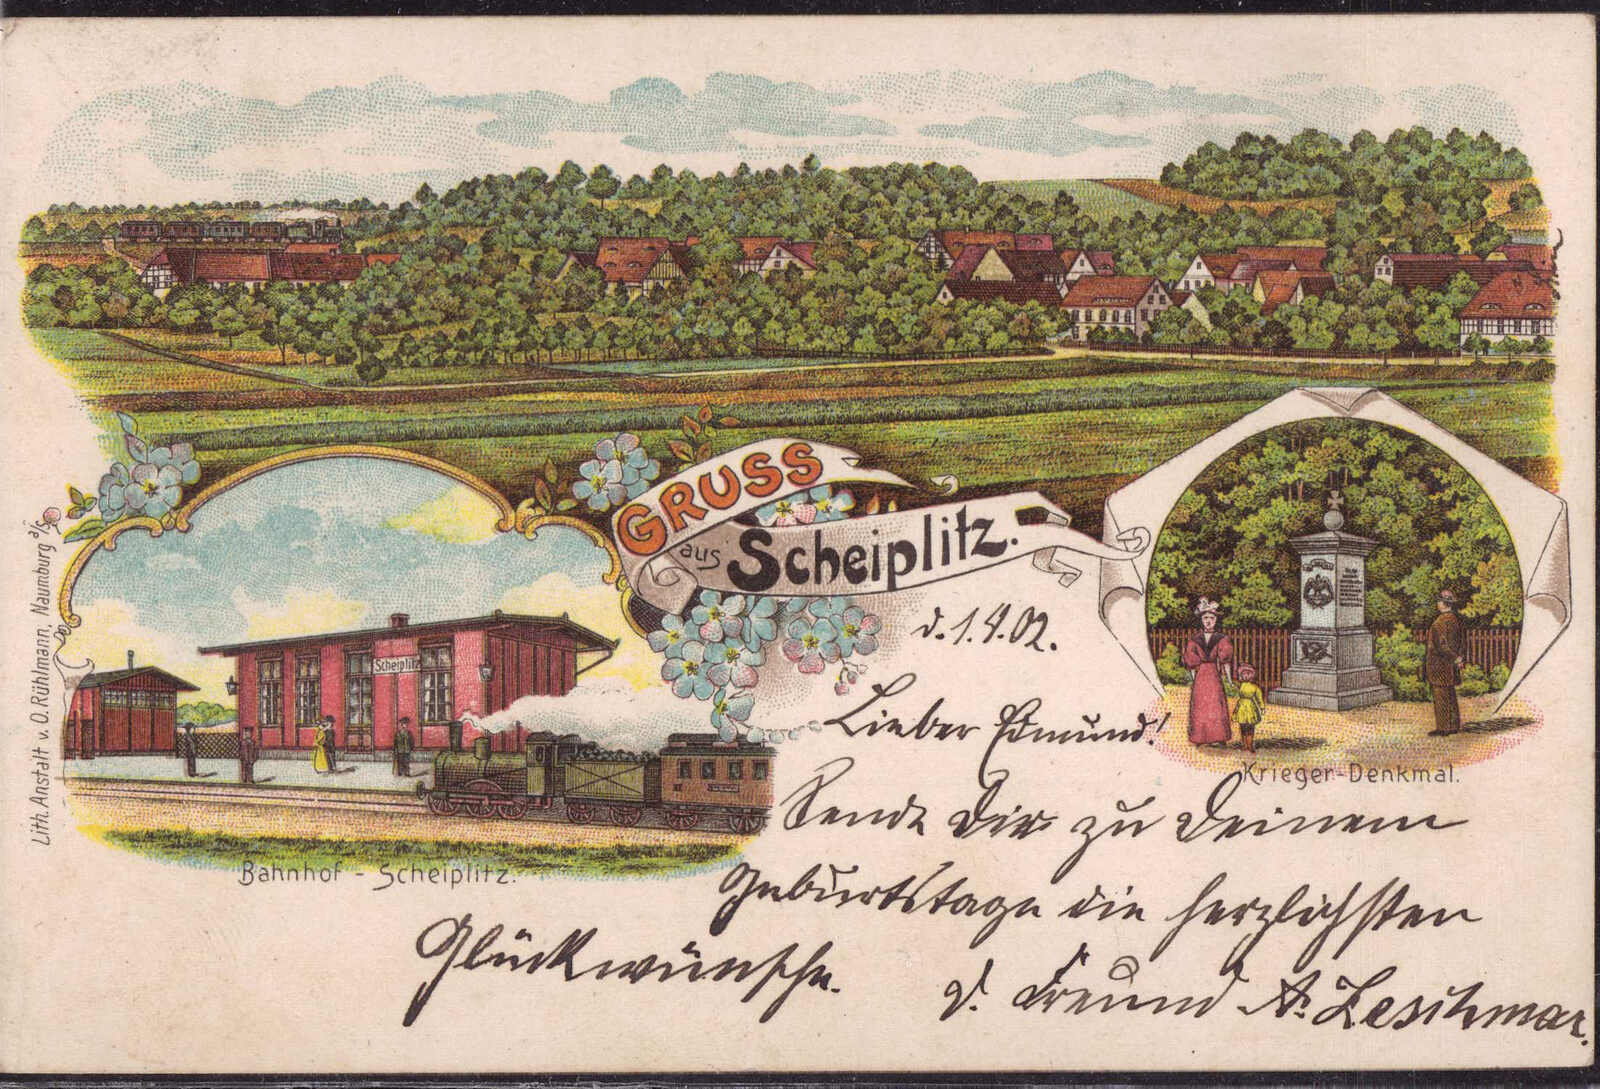 GRUSS
aus Scheiplitz.
d. 1.4.02.
Lieber Edmund!
Sende Dir zu Deinem
Geburtstage die herzlichsten
Glückwünsche.
d. Freund A.
Scheiplitz
Bahnhof - Scheiplitz.
Krieger-Denkmal.
Lith. Anstalt v. O. Rühlmann, Naumburg a/S